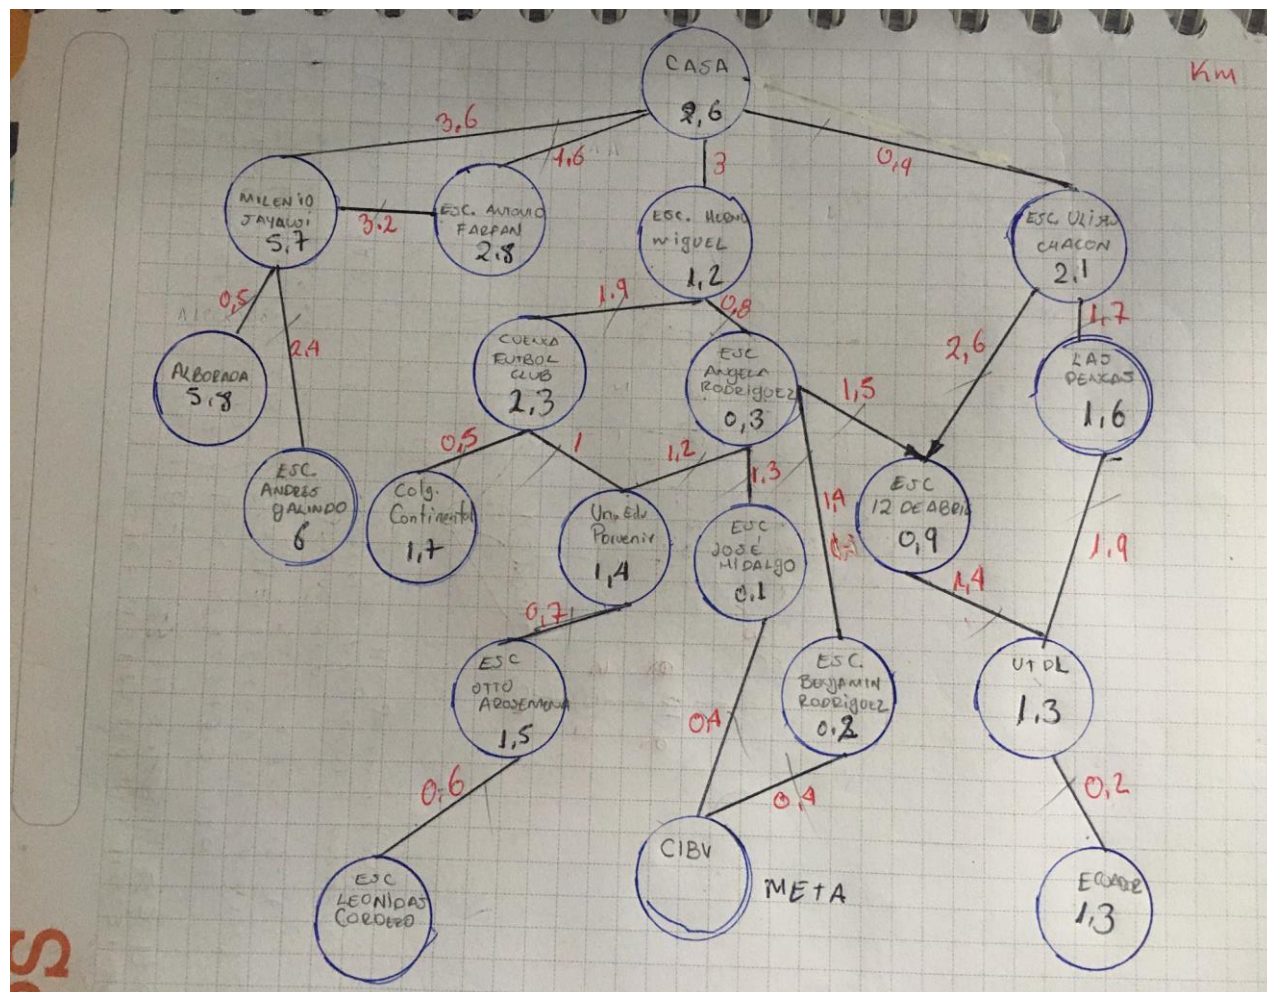 Km
CASA
2,6
3.6
1,6
3
0,4
MILENIO
JAYAWI
5,7
3.2
ESC. ANTONIO
FARFAN
2.8
ESC.
MIGUEL
1,2
ESC. ULISES
CHACON
2.1
0,5
2,4
1.9
0,8
2,6
1,7
ALBORADA
5.8
CUENCA
FUTBOL
CLUB
2.3
ESC
ANGELA
RODRIGUEZ
0,3
1,5
LAS
PENCAS
1,6
0,5
1
1,2
1.3
1,4
ESC.
ANDRES
GALINDO
6
Colg.
Continental
1,7
Un. Edu
Porvenir
1,4
ESC
JOSÉ
HIDALGO
0.1
ESC
12 DE ABRIL
0,9
1.9
0,7
1,4
ESC
OTTO
AROSEMENA
1,5
ESC.
BENJAMIN
RODRIGUEZ
0.2
UTPL
1.3
0,4
0,6
0,4
0,2
ESC
LEONIDAS
CORDERO
CIBV
META
ECUADOR
1,3